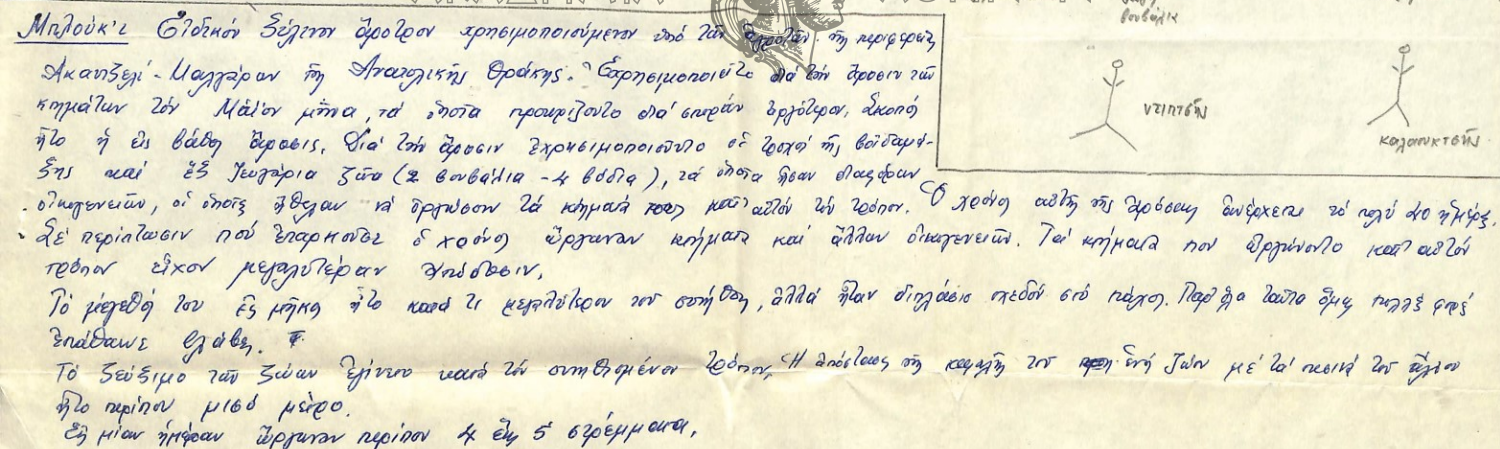 Μπλούκ'ι Εἰδικόν ξύλινον ἄροτρον χρησιμοποιούμενον ὑπό τῶν ἀγροτῶν τῆς περιφερείας
βουβάλια
Μαλγάρων τῆς Ἀνατολικῆς Θράκης. Ἐχρησιμοποιεῖτο διά τήν ἄροσιν τῶν
κτημάτων τόν Μάϊον μῆνα, τά ὁποῖα προωρίζοντο διά σποράν ἀργότερον. Σκοπός
ντιπτσῆς
ἦτο ἡ εἰς βάθος ἄροσις. Διά τήν ἄροσιν ἐχρησιμοποιοῦντο οἱ τροχοί τῆς
καλαουκτσῆς
καί ἕξ ζευγάρια ζῶα (2 βουβάλια - 4 βόδια), τά ὁποῖα ἦσαν διαφόρων
οἰκογενειῶν, οἱ ὁποῖες ἤθελαν νά ὀργώσουν τά κτήματά τους κατ' αὐτόν τόν τρόπον. Ὁ χρόνος αὐτῆς τῆς ἀρόσεως ἀνέρχεται τό πολύ 20 ἡμέρες.
Σέ περίπτωσιν πού ἐπαρκοῦσε ὁ χρόνος ὤργωναν κτήματα καί ἄλλων οἰκογενειῶν. Τά κτήματα που ὠργώνοντο κατ' αὐτόν
τρόπον εἶχον μεγαλυτέραν ἀπόδοσιν.
Τό μέγεθός του εἰς μῆκος ἦτο κατά τι μεγαλύτερον τοῦ συνήθους, ἀλλά ἦταν διπλάσιο σχεδόν στό πάχος. Παρ' ὅλα ταῦτα ὅμως πολλές φορές
ἐπάθαινε βλάβες.
Τό ζεύξιμο τῶν ζώων ἐγίνετο κατά τόν συνηθισμένον τρόπον. Ἡ ἀπόστασις τῆς κεφαλῆς τοῦ ἑνός ζώου μέ τά πισινά τοῦ ἄλλου
ἦτο περίπου μισό μέτρο.
Εἰς μίαν ἡμέραν ὤργωναν περίπου 4 ἕως 5 στρέμματα.